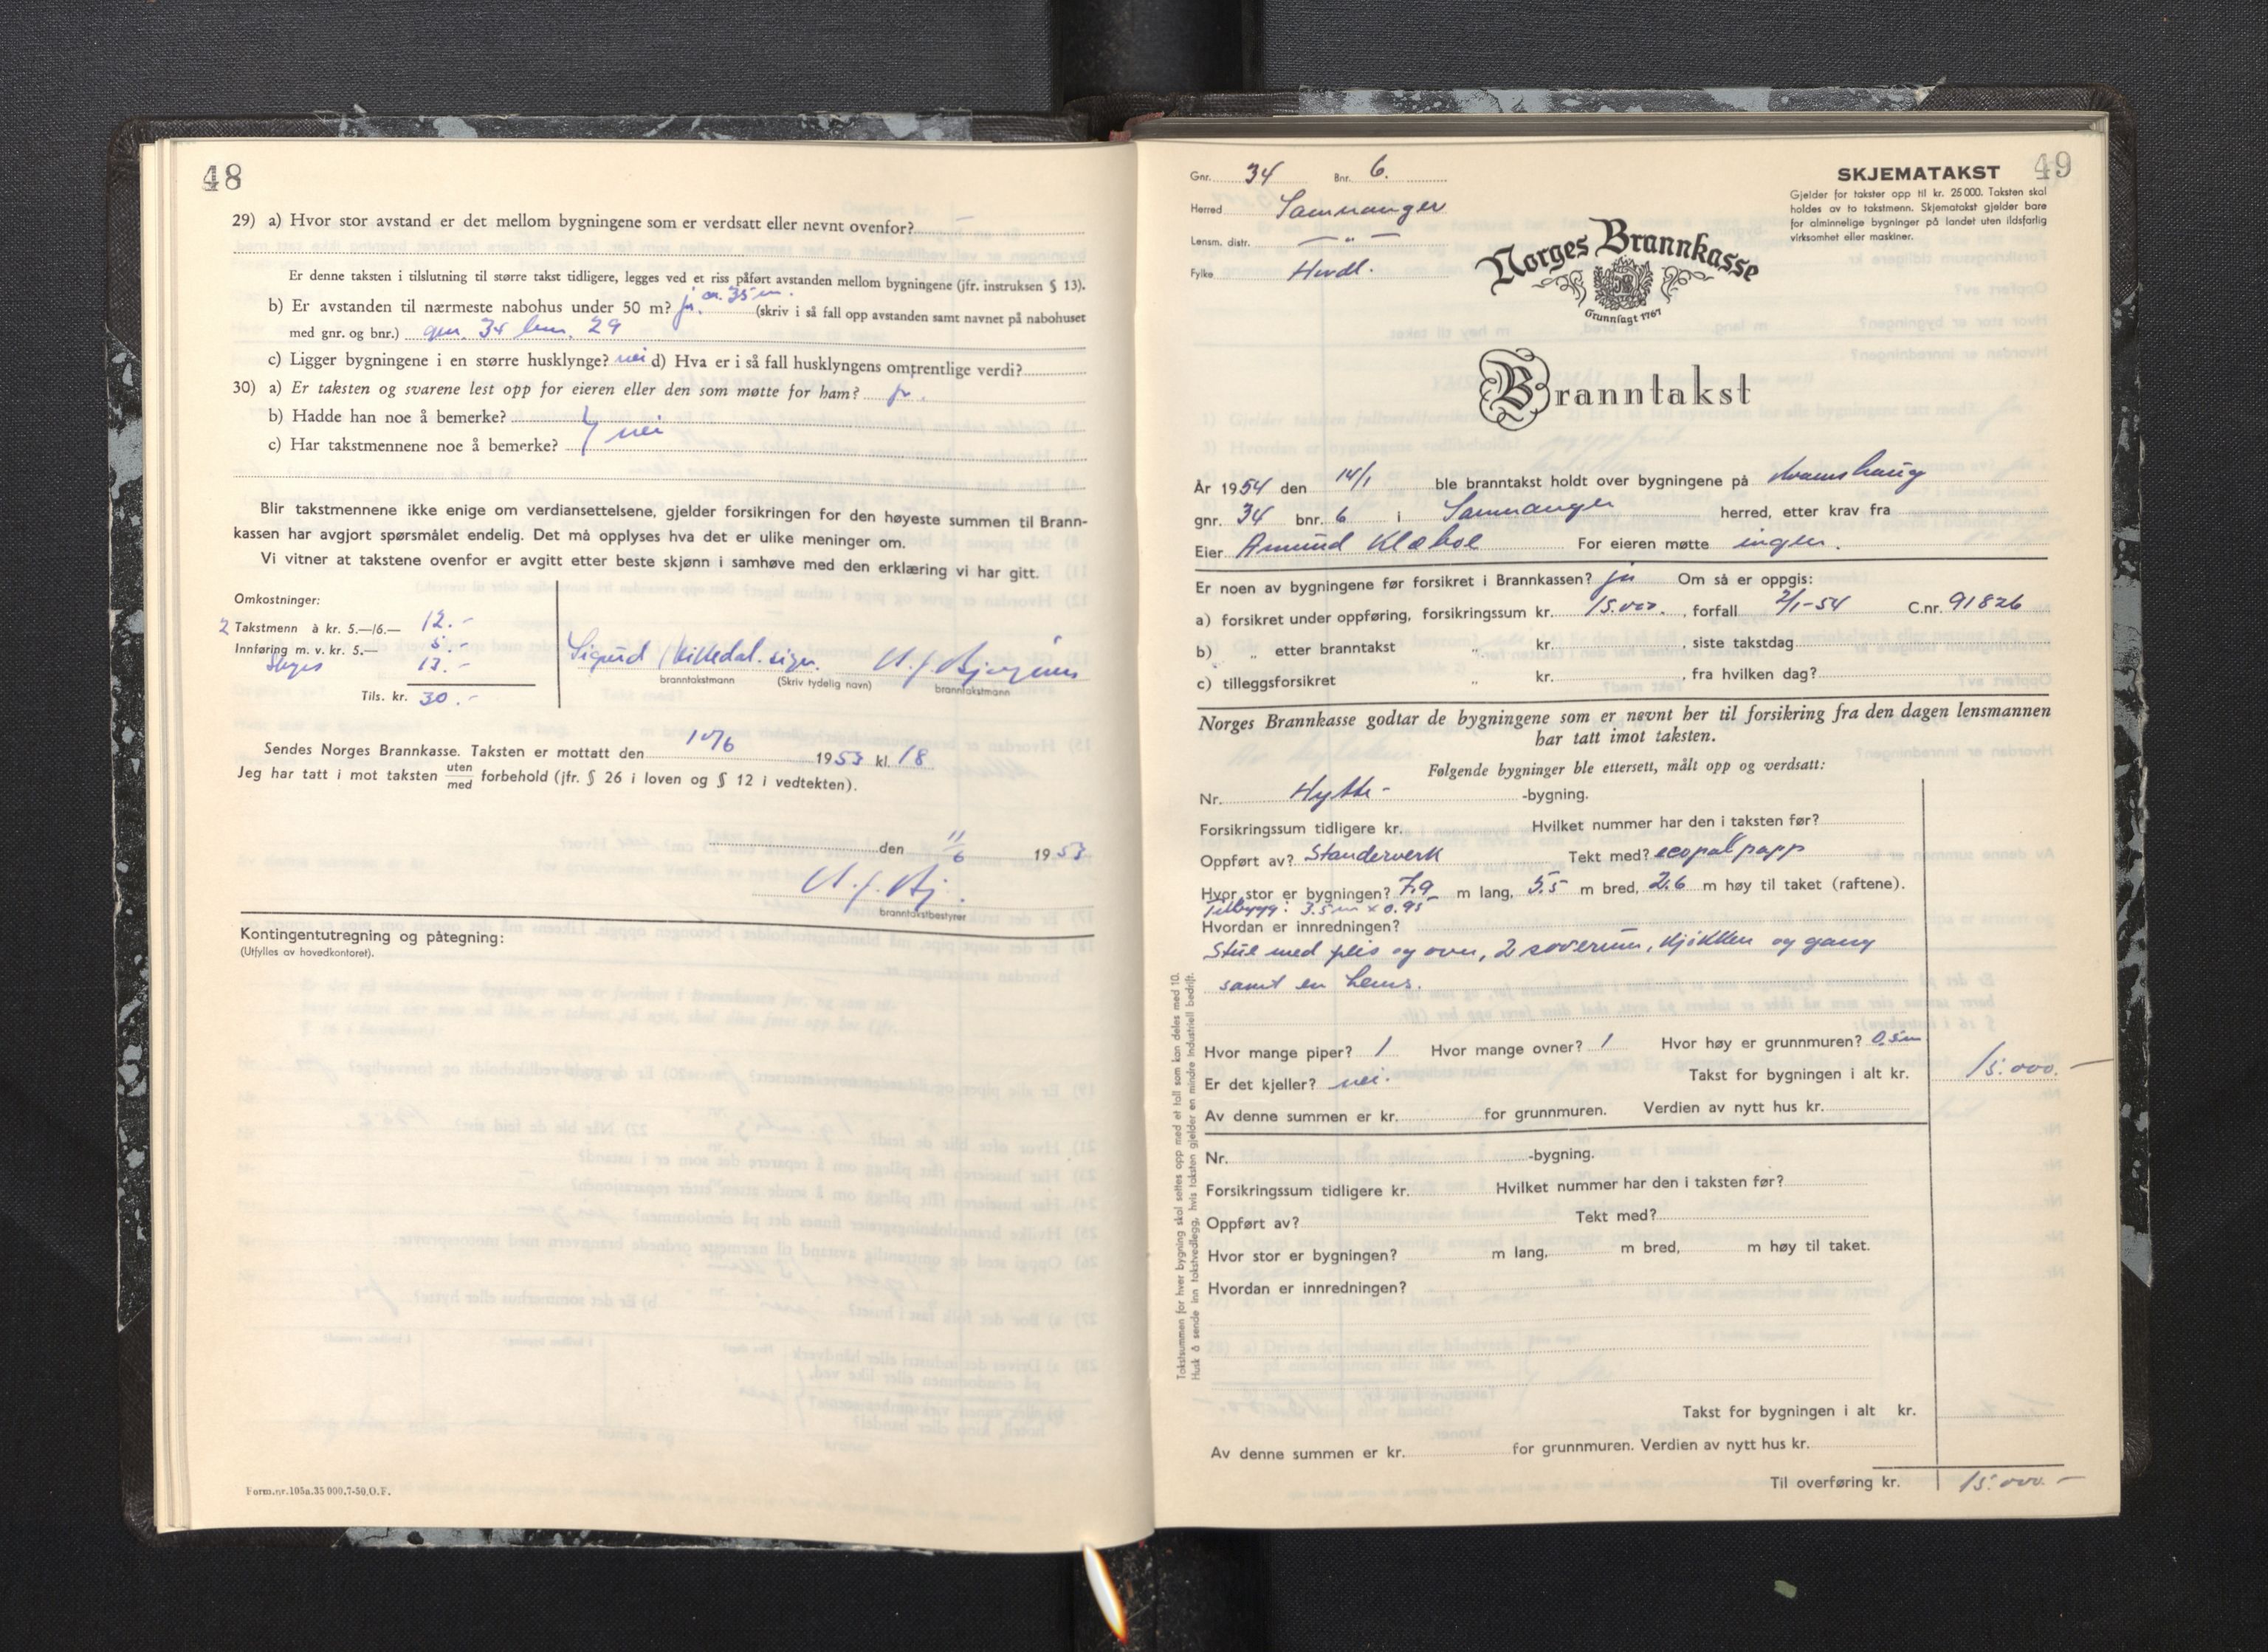 48
29) a) Hvor stor avstand er det mellom bygningene som er verdsatt eller nevnt ovenfor?
Er denne taksten i tilslutning til større takst tidligere, legges ved et riss påført avstanden mellom bygningene (jfr. instruksen § 13).
b) Er avstanden til nærmeste nabohus under 50 m? ja. ca. 35 m. (skriv i så fall opp avstanden samt navnet på nabohuset
med gnr. og bnr.) gnr. 34 bnr. 29
c) Ligger bygningene i en større husklynge? nei d) Hva er i så fall husklyngens omtrentlige verdi?
30) a) Er taksten og svarene lest opp for eieren eller den som møtte for ham? ja.
b) Hadde han noe å bemerke?
c) Har takstmennene noe å bemerke? nei
Blir takstmennene ikke enige om verdiansettelsene, gjelder forsikringen for den høyeste summen til Brann-
kassen har avgjort spørsmålet endelig. Det må opplyses hva det er ulike meninger om.
Vi vitner at takstene ovenfor er avgitt etter beste skjønn i samhøve med den erklæring vi har gitt.
Omkostninger:
2 Takstmenn à kr. 5.—/6.— 12.-
Innføring m. v. kr. 5.— 5.-
Skyss 13.-
Tils. kr. 30.-
Sigurd sign.
branntakstmann (Skriv tydelig navn) branntakstmann
Sendes Norges Brannkasse. Taksten er mottatt den 10/6 1953 kl. 18
Jeg har tatt i mot taksten uten/med forbehold (jfr. § 26 i loven og § 12 i vedtekten).
den 11/6 1953
branntakstbestyrer
Kontingentutregning og påtegning:
(Utfylles av hovedkontoret).
Form.nr.105a.35 000.7-50.O.F.
49
Gnr. 34 Bnr. 6.
Herred Samnanger
Lensm. distr. — „ —
Fylke Hordl.
SKJEMATAKST
Gjelder for takster opp til kr. 25 000. Taksten skal
holdes av to takstmenn. Skjematakst gjelder bare
for alminnelige bygninger på landet uten ildsfarlig
virksomhet eller maskiner.
Norges Brannkasse
Grunnlagt 1767
Branntakst
År 1954 den 14/1 ble branntakst holdt over bygningene på
gnr. 34 bnr. 6 i Samnanger herred, etter krav fra
Eier Amund Klæboe For eieren møtte ingen.
Er noen av bygningene før forsikret i Brannkassen? ja Om så er oppgis:
a) forsikret under oppføring, forsikringssum kr. 15.000., forfall 2/1-54 C.nr. 91826
b) „ etter branntakst „ kr. , siste takstdag
c) tilleggsforsikret „ kr. , fra hvilken dag?
Norges Brannkasse godtar de bygningene som er nevnt her til forsikring fra den dagen lensmannen
har tatt imot taksten.
Følgende bygninger ble ettersett, målt opp og verdsatt:
Nr. Hytte- -bygning.
Forsikringssum tidligere kr. Hvilket nummer har den i taksten før?
Oppført av? Standerverk Tekt med? papp
Hvor stor er bygningen? 7.9 m lang, 5.5 m bred, 2.6 m høy til taket (raftene).
Tilbygg: 3.5 m x 0.95
Hvordan er innredningen?
Stue med peis og ovn, 2 soverum, kjøkken og gang
samt en hems.
Hvor mange piper? 1 Hvor mange ovner? 1 Hvor høy er grunnmuren? 0.5m
Er det kjeller? nei. Takst for bygningen i alt kr. 15.000.-
Av denne summen er kr. for grunnmuren. Verdien av nytt hus kr.
Nr. -bygning.
Forsikringssum tidligere kr. Hvilket nummer har den i taksten før?
Oppført av? Tekt med?
Hvor stor er bygningen? m lang, m bred, m høy til taket.
Hvordan er innredningen?
Takst for bygningen i alt kr.
Av denne summen er kr. for grunnmuren. Verdien av nytt hus kr.
Til overføring kr. 15.000.-
Takstsummen for hver bygning skal settes opp med et tall som kan deles med 10.
Husk å sende inn takstvedlegg, hvis taksten gjelder en mindre industriell bedrift.